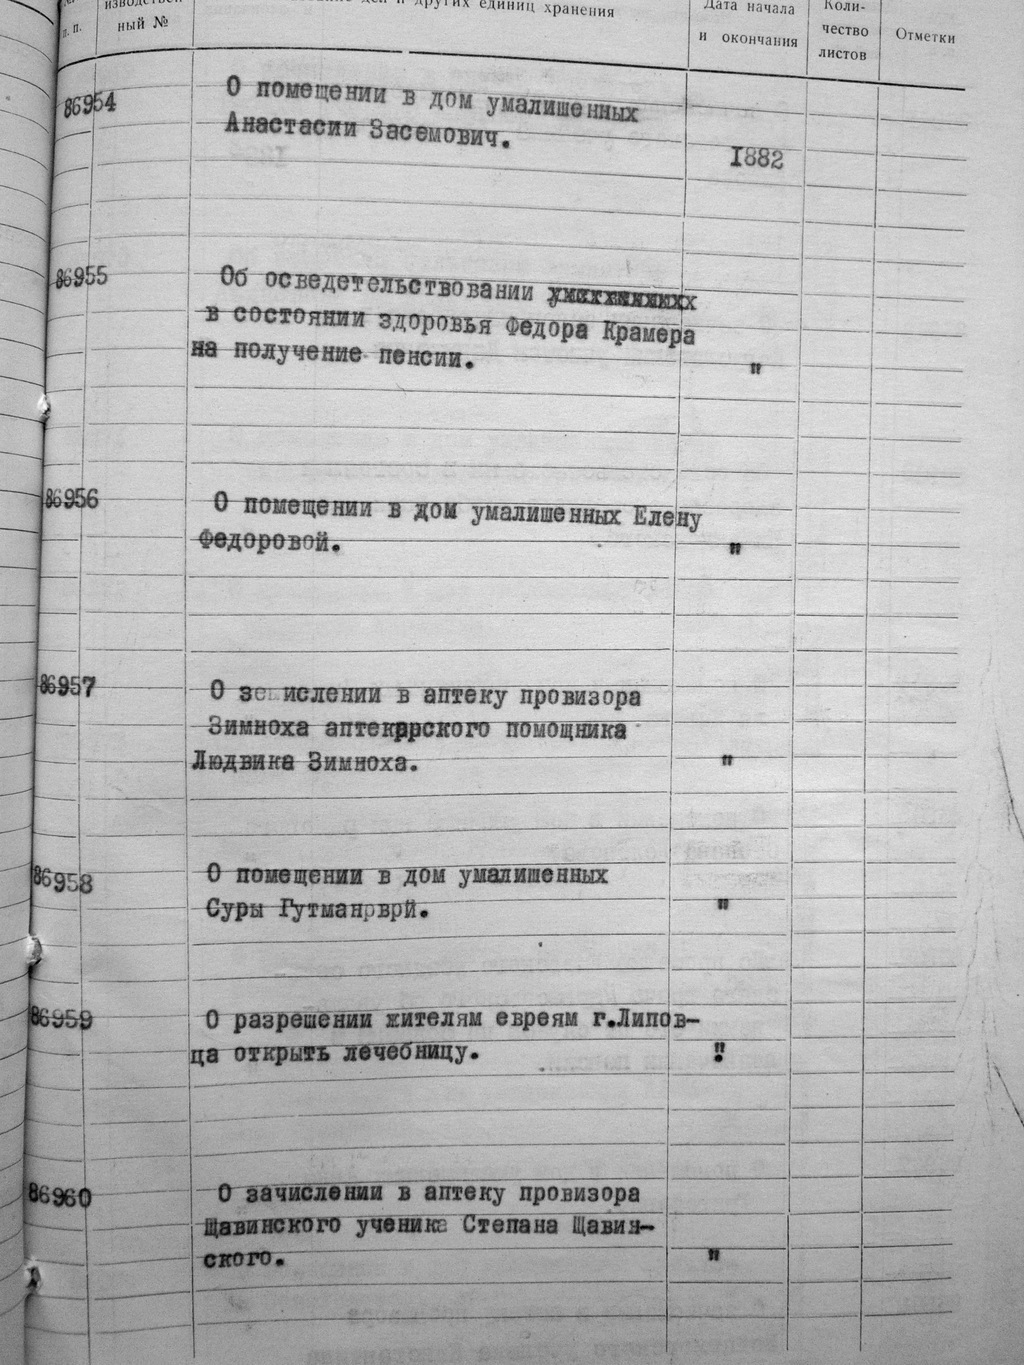 п. п.
ный №
дел и других единиц хранения
Дата начала
и окончания
Коли-
чество
листов
Отметки
86954
О помещении в дом умалишенных
Анастасии Засемович.
1882
86955
Об осведетельствовании
в состоянии здоровья Федора Крамера
на получение пенсии.
"
86956
О помещении в дом умалишенных Елену
Федоровой.
"
86957
О ислении в аптеку провизора
Зимноха аптекарского помощника
Людвика Зимноха.
"
86958
О помещении в дом умалишенных
Суры
"
86959
О разрешении жителям евреям г.Липов-
ца открыть лечебницу.
"
86960
О зачислении в аптеку провизора
Щавинского ученика Степана Щавин-
ского.
"